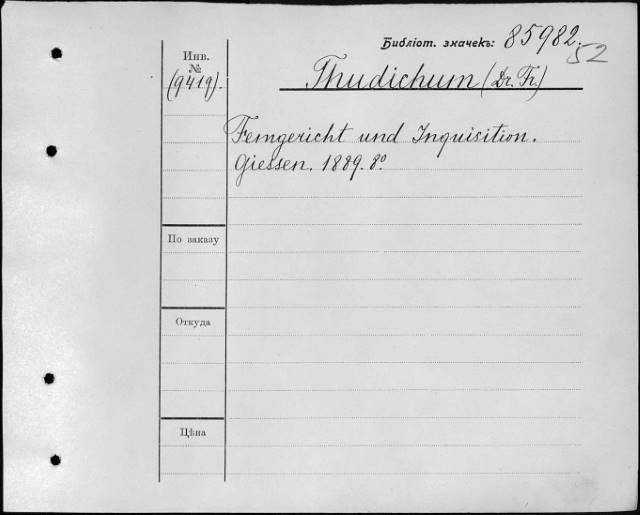 Библіот. значекъ: 85982.
52
Инв.
№
(9419).
Thudichum (Dr. Fr.)
Femgericht und Inquisition.
Giessen. 1889. 8º
По заказу
Откуда
Цѣна